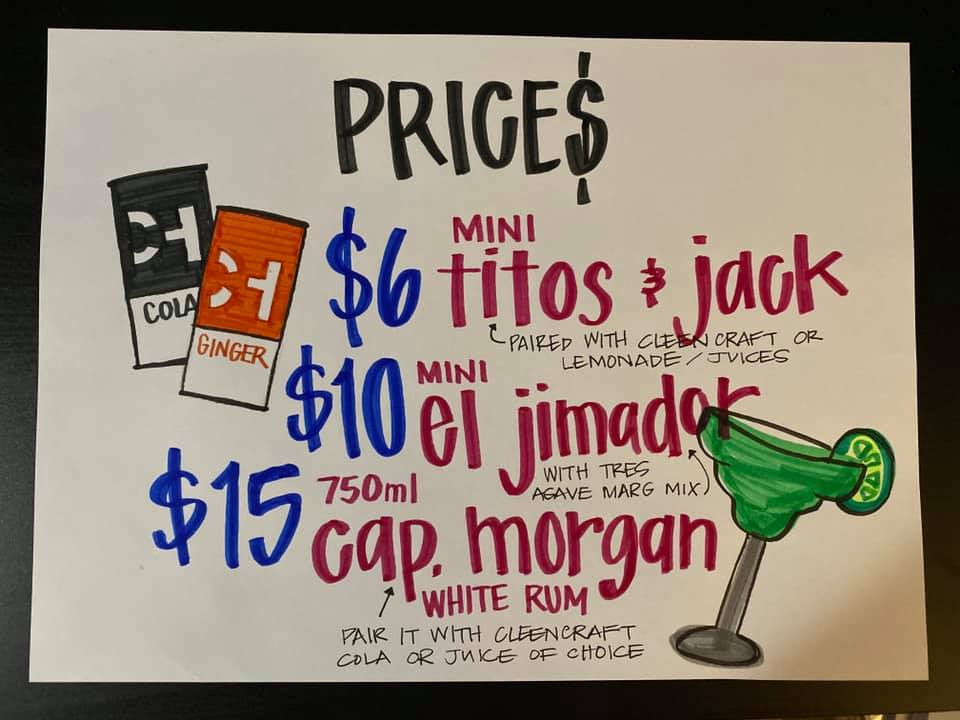 PRICE$
CH
COLA
CH
GINGER
$6 MINI titos & jack
PAIRED WITH CLEEN CRAFT OR
LEMONADE/JUICES
$10 MINI el jimador
WITH TRES
AGAVE MARG MIX
$15 750ml cap. morgan
WHITE RUM
PAIR IT WITH CLEENCRAFT
COLA OR JUICE OF CHOICE